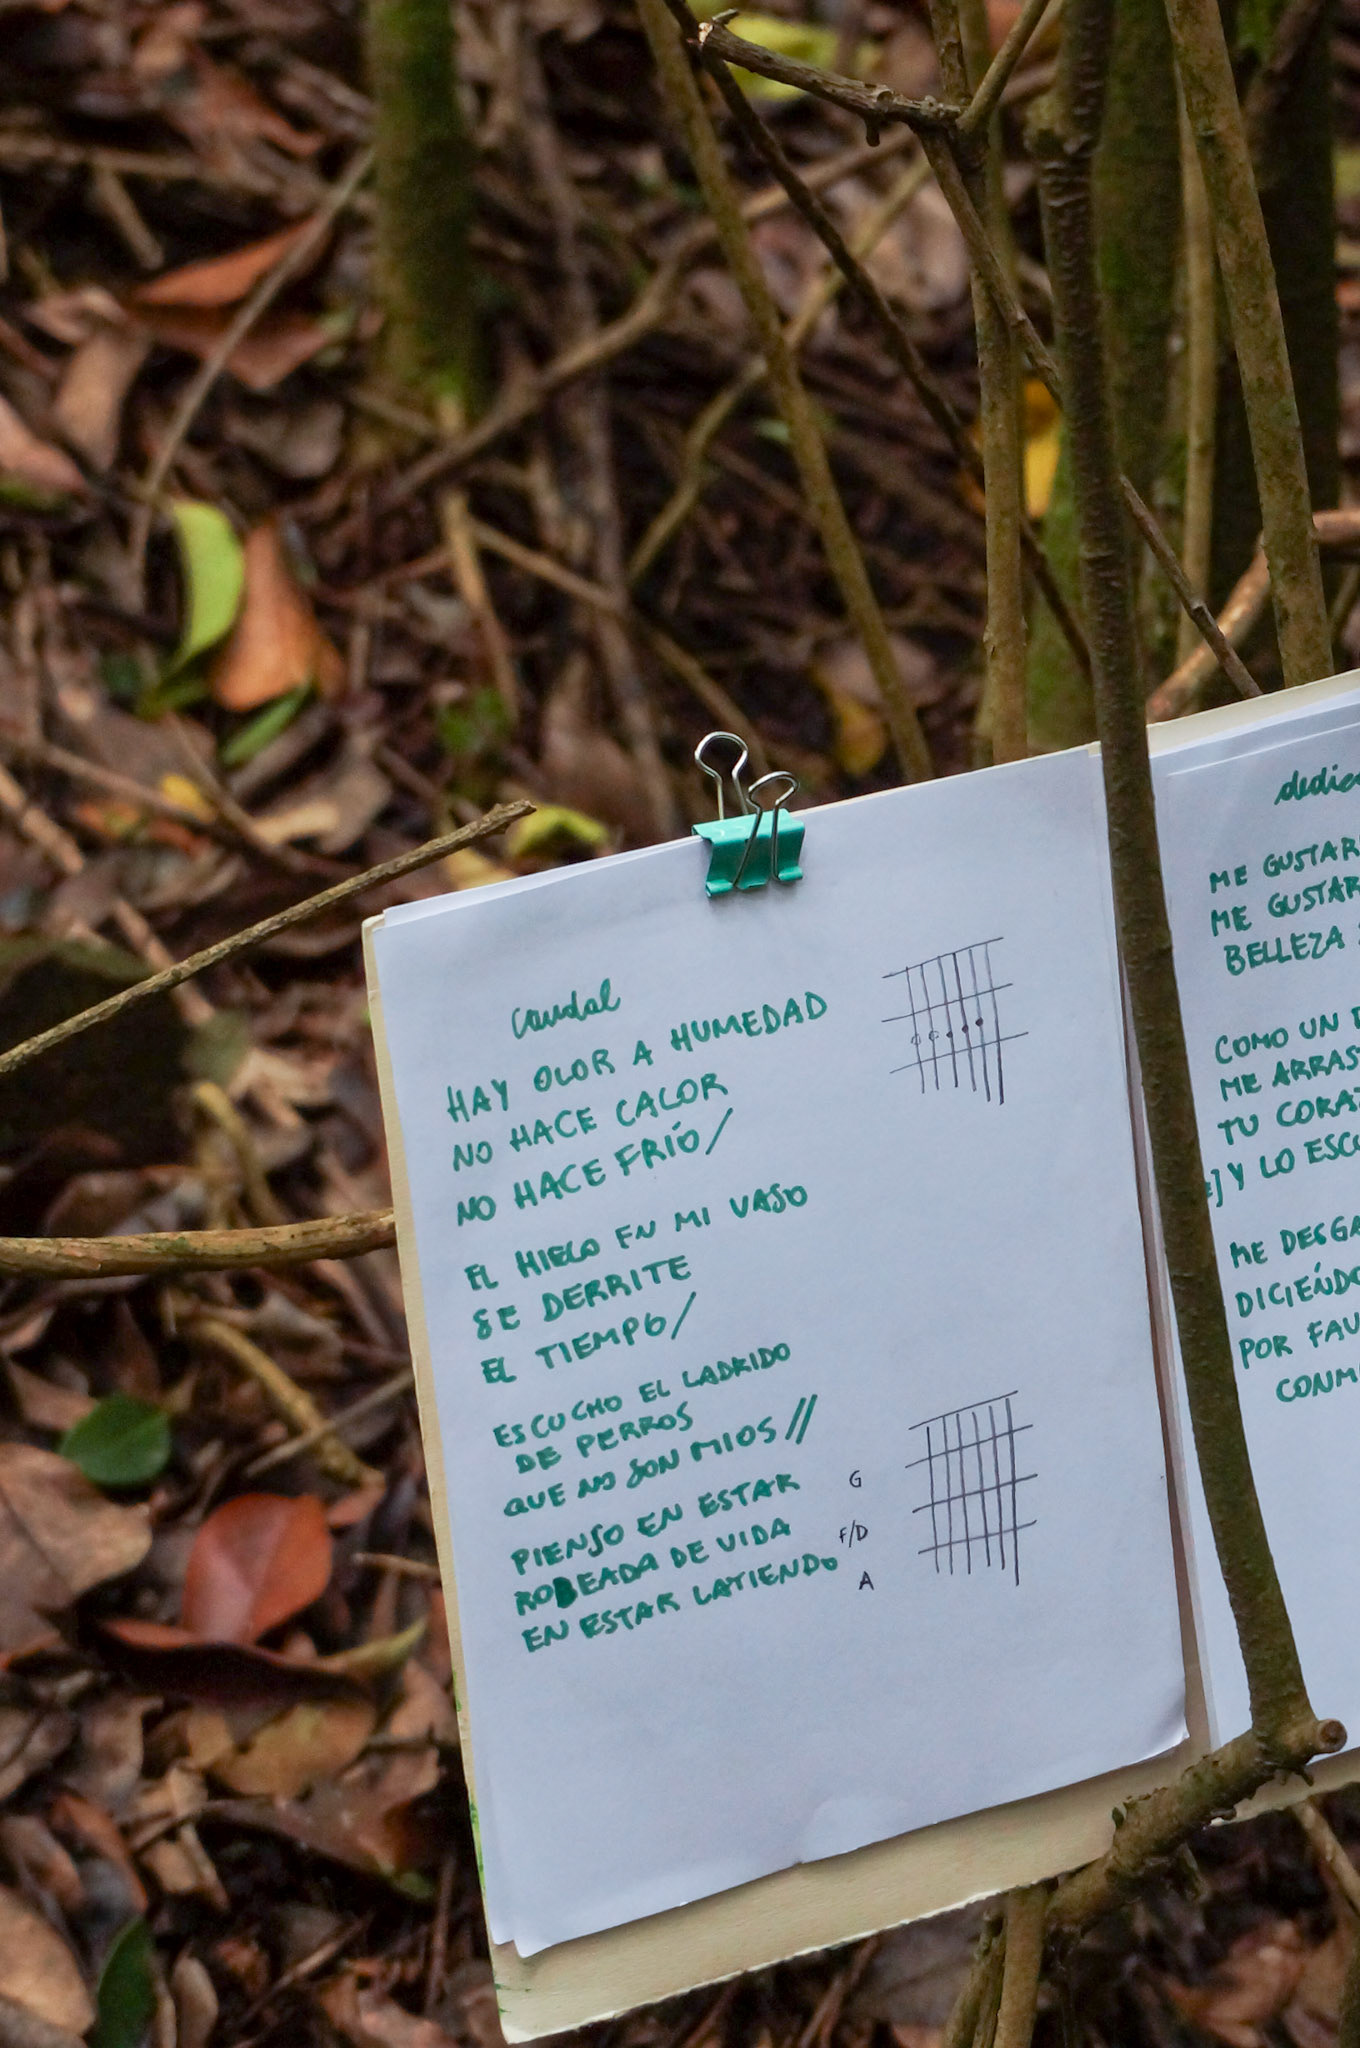 caudal
HAY OLOR A HUMEDAD
NO HACE CALOR
NO HACE FRÍO/
EL HIELO EN MI VASO
SE DERRITE
EL TIEMPO/
ESCUCHO EL LADRIDO
DE PERROS
QUE NO SON MIOS//
PIENSO EN ESTAR
RODEADA DE VIDA
EN ESTAR LATIENDO
G
F/D
A
ME GUSTAR
ME GUSTAR
BELLEZA
COMO UN
ME ARRAS
TU CORA
] Y LO ESC
ME DESGA
DICIÉNDO
POR FAV
CONM